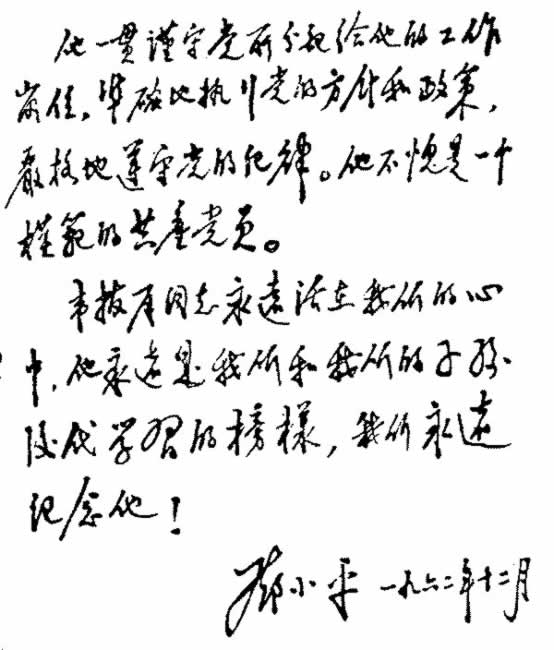 他一贯謹守党所分配给他的工作
崗位，準確地执行党的方针和政策，
嚴格地遵守党的纪律。他不愧是一个
模範的共產党员。
韦拔群同志永遠活在我们的心
中，他永遠是我们和我们的子孫
後代学習的榜様，我们永遠
纪念他！
鄧小平 一九六二年十二月